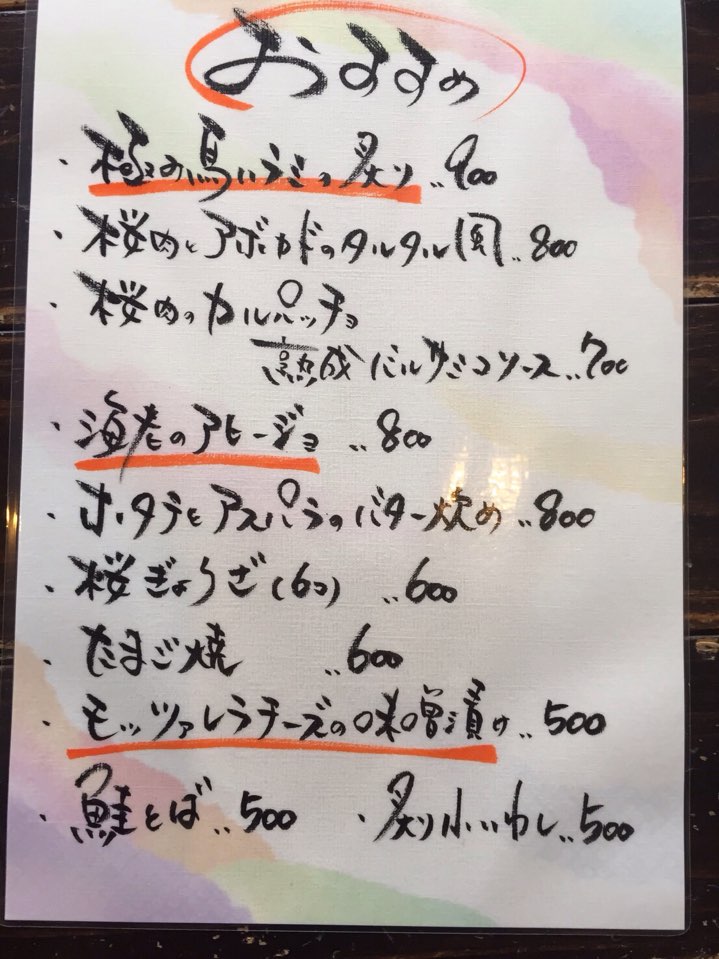 おすすめ
・極み馬ハラミの炙り‥900
・桜肉とアボカドのタルタル風‥800
・桜肉のカルパッチョ
熟成バルサミコソース‥700
・海老のアヒージョ ‥800
・ホタテとアスパラのバター炊め‥800
・桜ぎょうざ(6コ) ‥600
・たまご焼 ‥600
・モッツァレラチーズの味噌漬け‥500
・鮭とば‥500 ・炙り小いわし‥500